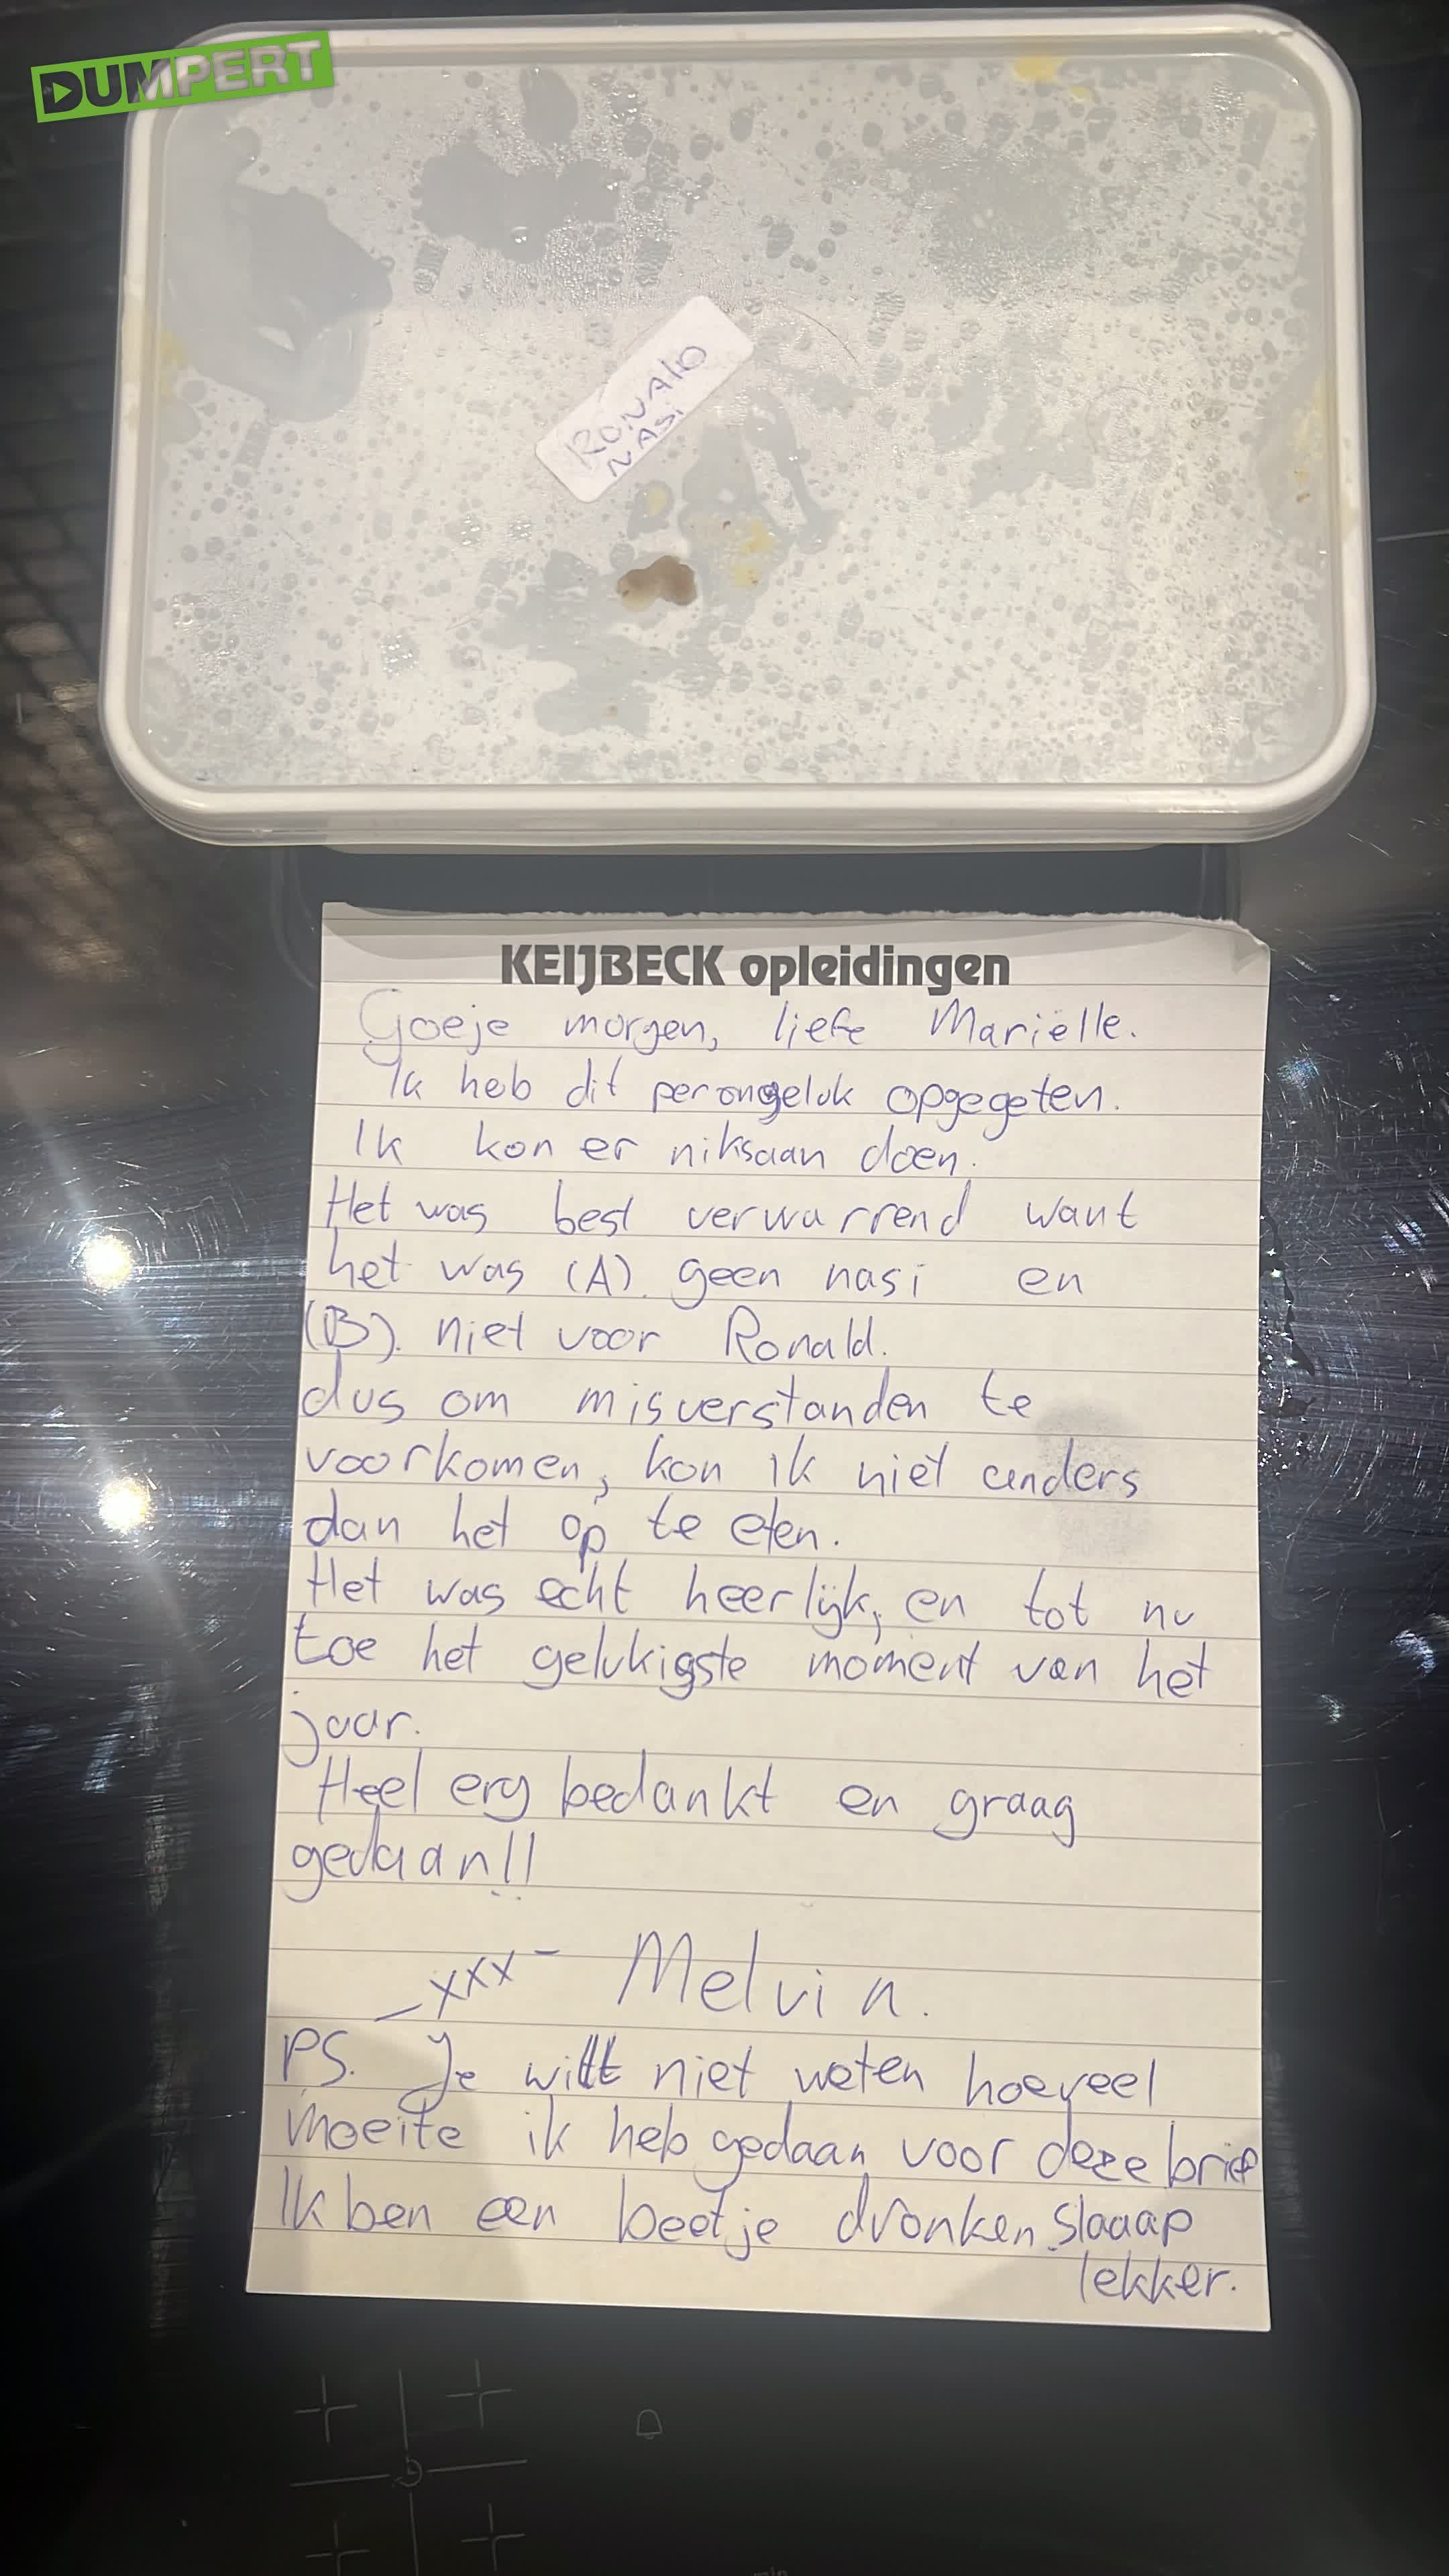 DUMPERT
RONALD
NASI
KEIJBECK opleidingen
Goeje morgen, liefe Mariëlle.
Ik heb dit perongeluk opgegeten.
Ik kon er niksaan doen.
Het was best verwarrend want
het was (A). geen nasi en
(B). niet voor Ronald.
dus om misverstanden te
voorkomen, kon ik niet anders
dan het op te eten.
Het was echt heerlijk, en tot nu
toe het gelukigste moment van het
jaar.
Heel erg bedankt en graag
gedaan!!
-xxx- Melvin.
PS. Je wilt niet weten hoeveel
moeite ik heb gedaan voor deze brief
Ik ben een beetje dronken slaaap
lekker.